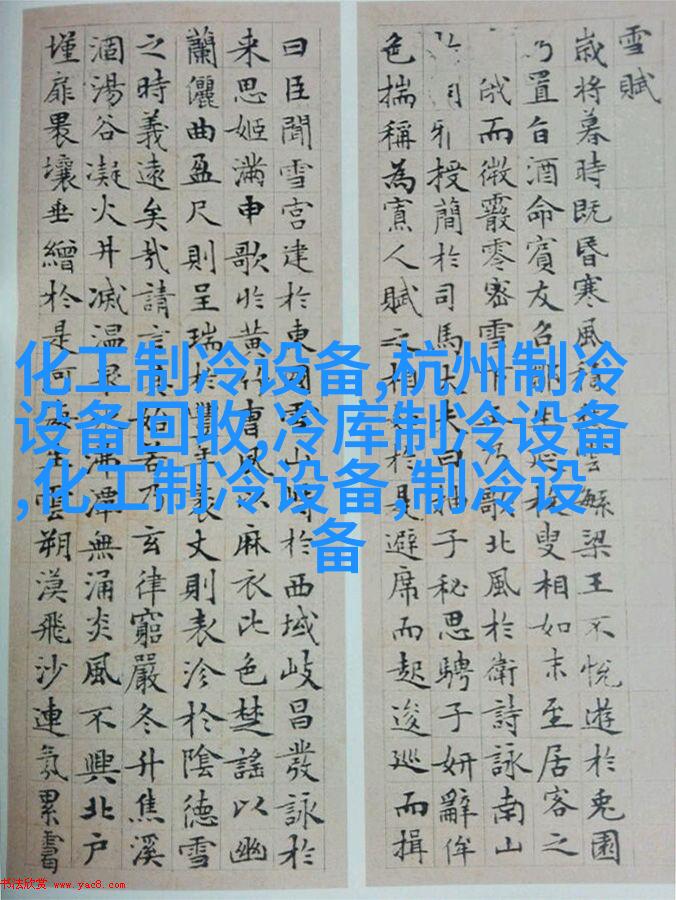 雪賦
歲將暮時既昏寒風雲繁梁王不悅遊於兔園
乃置旨酒命賓友召生延枚叟相如末至居客之
俄而微霰零密雪下乃歌北風於衛詩詠南山
授簡於司馬大夫曰抽子秘思騁子妍辭侔
色揣稱為寡人賦之相如於是避席而起逡巡而揖
曰臣聞雪宮建於東國雪山峙於西域岐昌發詠於
来思姬滿申歌於黃竹曹風以麻衣比色楚謠以幽
蘭儷曲盈尺則呈瑞於豐年袤丈則表沴於陰德雪
之時義遠矣哉請言其始若乃玄律窮嚴冬升焦溪
涸湯谷凝火井滅溫泉沸潭無涌炎風不興北户
墐扉壤垂繒於是河海生雲朔漠飛沙連氛累靄
化工制冷设备,杭州制冷
设备回收,冷库制冷设备
,化工制冷设备,制冷设
备
书法欣赏 www.yac8.com